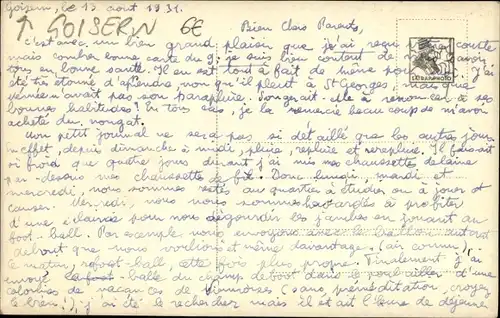 Goisern, le 13 août 1931.
↑ GOISERN 6€
Bien Chers Parents,
c'est avec un bien grand plaisir que j'ai reçu courte
mais combien bonne carte du 9; je suis bien content de
tous en bonne santé. Il en est tout à fait de même pour
été très étonné d'apprendre non qu'il pleut à St Georges mais que
n'avait pas son parapluie. Songerait-elle à renoncer à ses
bonnes habitudes? En tous cas, je la remercie beaucoup de m'avoir
acheté du nougat.
Mon petit journal ne sera pas si détaillé que les autres jours
En effet, depuis dimanche à midi, pluie, repluie et rerepluie. Il faisait
si froid que quatre jours durant j'ai mis mes chaussettes de laine
par-dessous mes chaussettes de fil. Donc lundi, mardi et
mercredi, nous sommes restés au quartier à étudier ou à jouer et
causer. Mercredi, nous nous sommes hasardés à profiter
d'une éclaircie pour nous dégourdir les jambes en jouant au
foot-ball. Par exemple nous envoyons avec le ballon autant
de boue que nous voulions et même davantage. (air connu).
le matin, refoot-ball cette fois plus propre. Finalement j'ai
envoyé le foot-balle du champ de foot dans le poulailler d'une
colonie de vacances de Viennoises (sans préméditation, croyez
le bien!), j'ai été le rechercher mais il était l'heure de déjeuner
EXTRA RAPID PHOTO